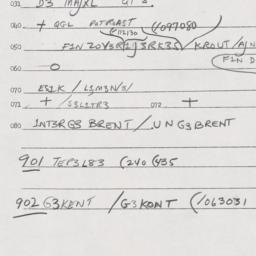 031 D3 MAJXL
040 + QGL POTBLAST (/097080
(112130
050 F1N 20V3R1J3RK35 / KROUT / AJN
(F1N D
060 O
070 ES1K / L1M3N/3/
071 + / S3L1TR3 072 +
080 1NT3RG3 BRENT / UNG3BRENT
901 TEP3L83 (240 (435
902 G3KENT / G3KONT (/063031